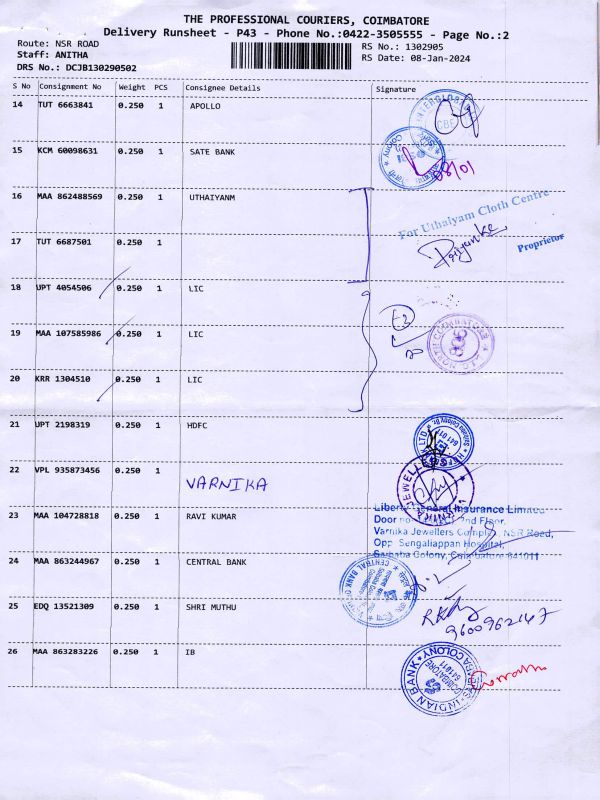 THE PROFESSIONAL COURIERS, COIMBATORE
Delivery Runsheet - P43 - Phone No.:0422-3505555 - Page No.:2
Route: NSR ROAD
Staff: ANITHA
DRS No.: DCJB130290502
RS No.: 1302905
RS Date: 08-Jan-2024
S No Consignment No Weight PCS Consignee Details Signature
14 TUT 6663841 0.250 1 APOLLO
15 KCM 60098631 0.250 1 SATE BANK
08/01
16 MAA 862488569 0.250 1 UTHAIYANM
For Uthaiyam Cloth Centre
Priyanka
Proprietor
17 TUT 6687501 0.250 1
18 UPT 4054506 0.250 1 LIC
19 MAA 107585986 0.250 1 LIC
20 KRR 1304510 0.250 1 LIC
21 UPT 2198319 0.250 1 HDFC
22 VPL 935873456 0.250 1 VARNIKA
23 MAA 104728818 0.250 1 RAVI KUMAR
Liberty General Insurance Limited
2nd Floor,
Varnika Jewellers Complex, NSR Road,
Opp. Sengaliappan Hospital,
Saibaba Colony, Coimbatore 641011
24 MAA 863244967 0.250 1 CENTRAL BANK
CENTRAL BANK
25 EDQ 13521309 0.250 1 SHRI MUTHU
9600962147
26 MAA 863283226 0.250 1 IB
INDIAN BANK
COIMBATORE
641011